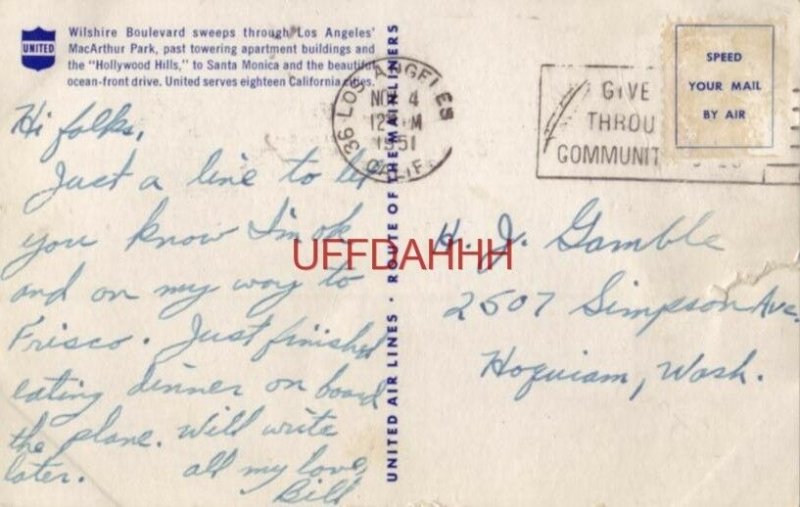 UNITED
Wilshire Boulevard sweeps through Los Angeles'
MacArthur Park, past towering apartment buildings and
the "Hollywood Hills," to Santa Monica and the beautiful
ocean-front drive. United serves eighteen California cities.
Hi folks,
Just a line to let
you know I'm ok
and on my way to
Frisco. Just finished
eating dinner on board
the plane. Will write
later. all my love,
Bill
UNITED AIR LINES · ROUTE OF THE MAINLINERS
LOS ANGELES
36
NOV 4
12 M
1951
CALIF.
GIVE
THROU
COMMUNIT
SPEED
YOUR MAIL
BY AIR
H. J. Gamble
2507 Simpson Ave.
Hoquiam, Wash.
UFFDAHHH